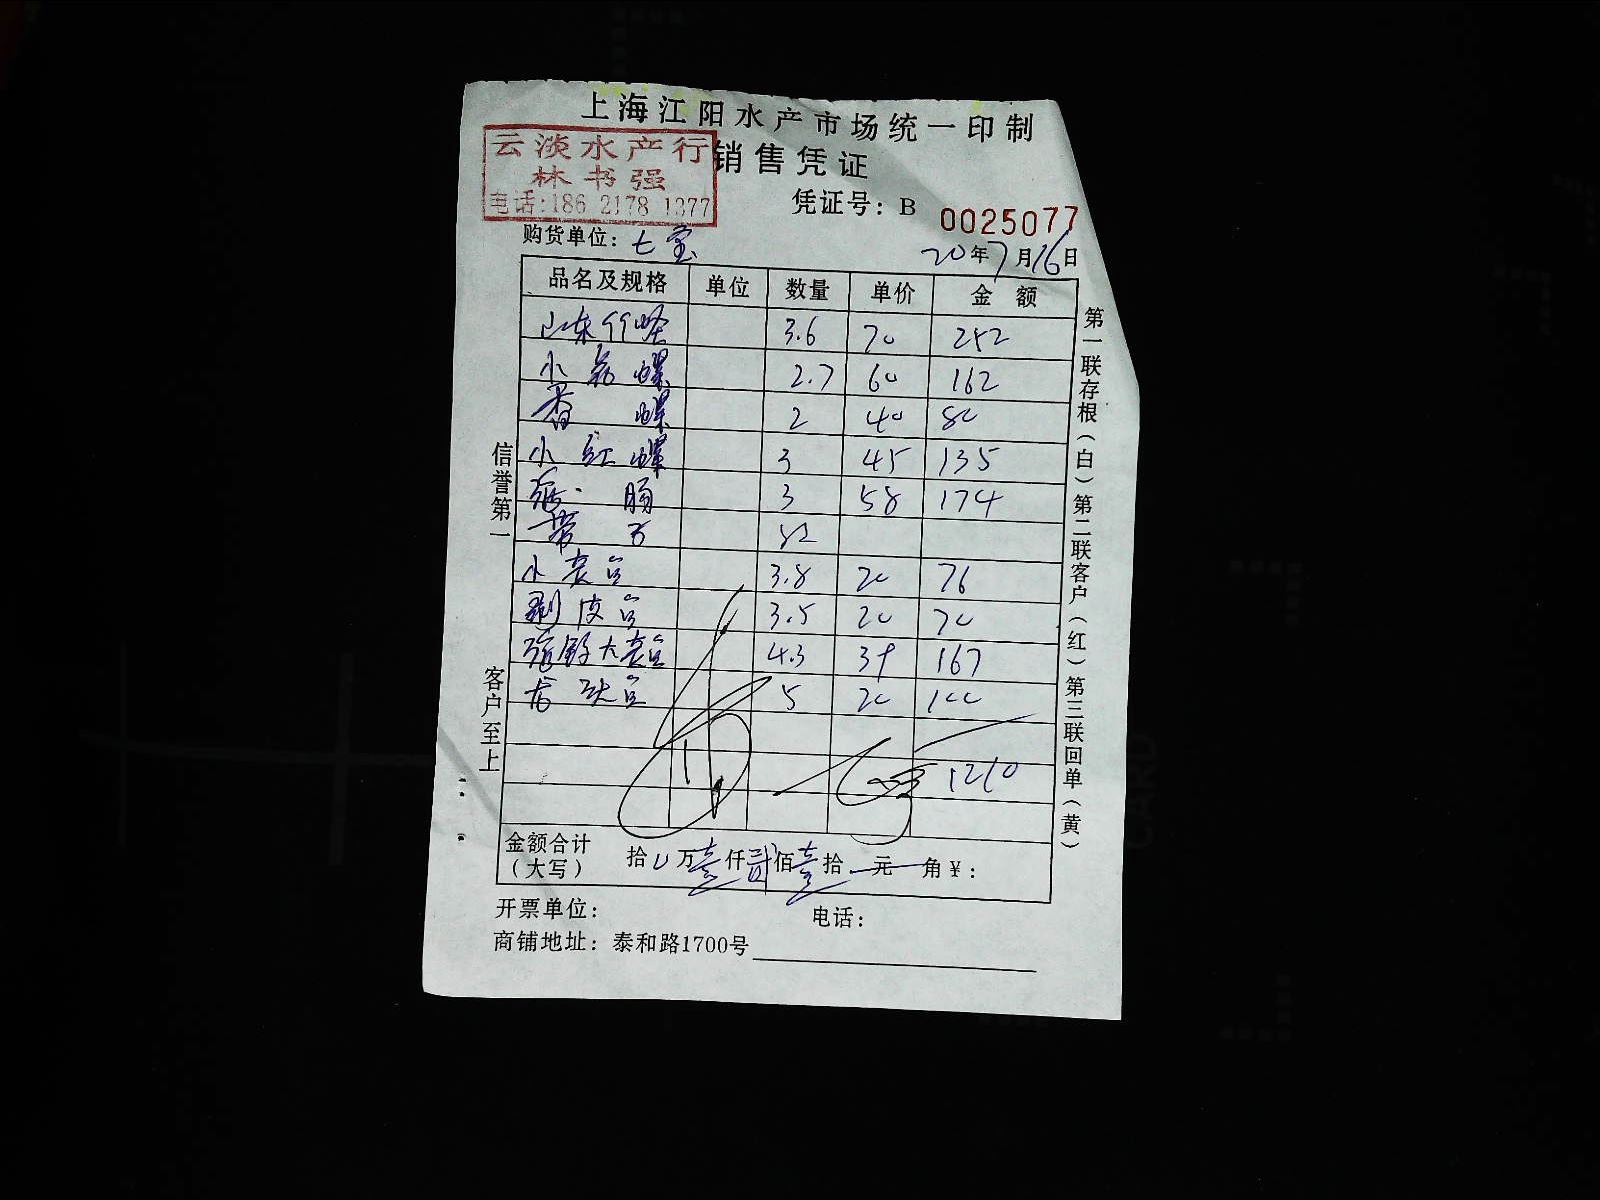 上海江阳水产市场统一印制
云淡水产行
林书强
电话:186 2178 1377
销售凭证
凭证号: B 0025077
购货单位: 七宝
20年7月16日
品名及规格 单位 数量 单价 金额
山东竹蛏 3.6 70 252
小花螺 2.7 60 162
香螺 2 40 80
小红螺 3 45 135
肠 3 58 174
带子 82
小 3.8 20 76
剥皮 3.5 20 70
大 4.3 39 167
5 20 100
1210
金额合计
(大写) 拾 万壹仟贰佰壹拾 元 角¥:
开票单位: 电话:
商铺地址: 泰和路1700号
信誉第一
客户至上
第一联存根(白)第二联客户(红)第三联回单(黄)